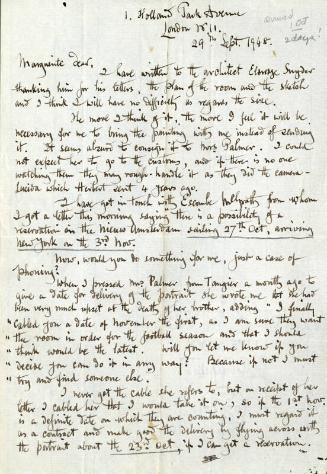 1. Holland Park Avenue
London W.11.
29th Sept. 1948.
Marguerite dear,
I have written to the architect Snyder
thanking him for his letters, the plan of the room and the sketch
and I think I will have no difficulty as regards the size.
The more I think of it, the more I feel it will be
necessary for me to bring the painting with me instead of sending
it. It seems absurd to consign it to Mrs Palmer. I could
not expect her to go to the customs, and if there is no one
watching them they may rough-handle it as they did the Camera-
Lucida which Herbert sent 4 years ago.
I have got in touch with from whom
I got a letter this morning saying there is a possibility of a
reservation on the Nieuw Amsterdam sailing 27th Oct, arriving
New York on the 3rd Nov.
Now, would you do something for me, just a case of
'phoning?
When I pressed Mrs Palmer from Tangier a month ago to
give a date for delivery of the portrait she wrote me that she had
been very much upset at the death of her brother, adding "I finally
"cabled you a date of November the first, as I am sure they want
"the room in order for the football season and that I should
"think would be the latest. Will you let me know if you
"decide you can do it in any way? Because if not I must
"try and find someone else.
I never got the cable she refers to, but on receipt of her
letter I cabled her that I would take it on, so if the 1st Nov.
is a definite date on which they are counting, I must regard it
as a contract and make good the delivery by flying across with
the portrait about the 23rd Oct, if I can get a reservation.